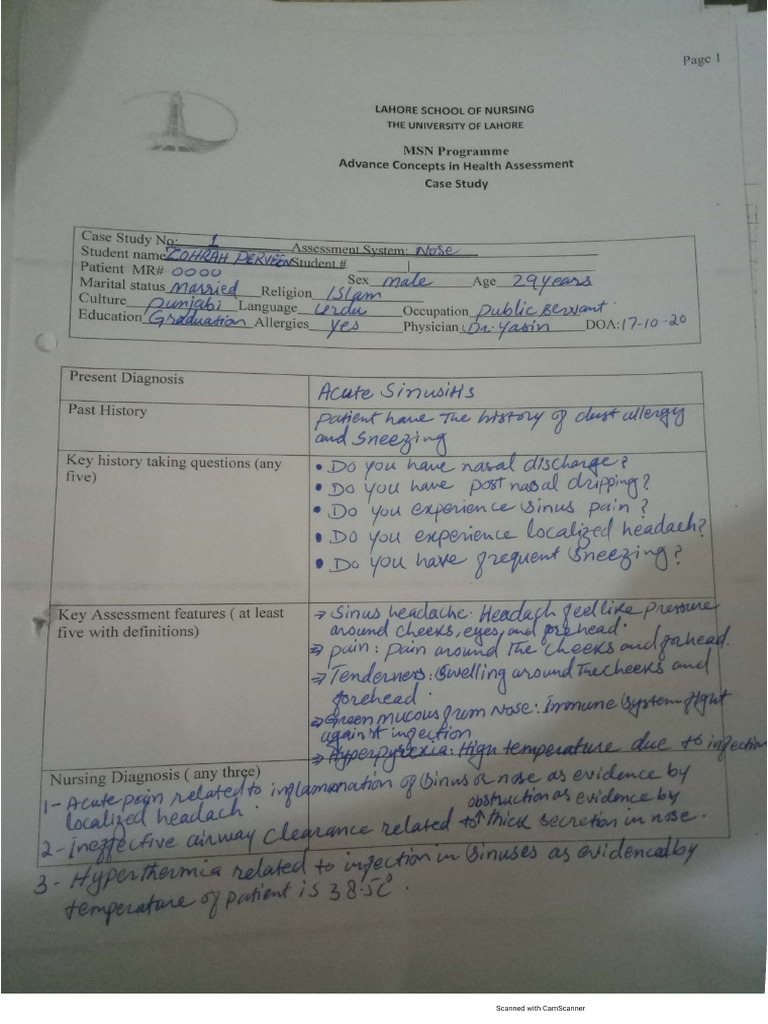 Page 1
LAHORE SCHOOL OF NURSING
THE UNIVERSITY OF LAHORE
MSN Programme
Advance Concepts in Health Assessment
Case Study
Case Study No: 1 Assessment System: Nose
Student name ZOHRAH PERVEEN Student #
Patient MR# 0000 Sex male Age 29 years
Marital status Married Religion Islam
Culture Punjabi Language Urdu Occupation Public Servant
Education Graduation Allergies Yes Physician Dr. Yasin DOA: 17-10-20
Present Diagnosis Acute Sinusitis
Past History Patient have the history of dust allergy
and Sneezing
Key history taking questions (any
five)
• Do you have nasal discharge?
• Do you have post nasal dripping?
• Do you experience sinus pain?
• Do you experience localized headach?
• Do you have frequent Sneezing?
Key Assessment features ( at least
five with definitions)
→ Sinus headache. Headach feel like pressure
around cheeks, eyes, and forehead.
→ Pain: Pain around the cheeks and forhead.
→ Tenderness: Swelling around the cheeks and
forehead.
→ Green mucous from Nose: Immune System fight
against infection
→ Hyperpyrexia: High temperature due to infection
Nursing Diagnosis ( any three)
1- Acute pain related to inflammation of Sinus or nose as evidence by
localized headach.
2- Ineffective airway clearance related to obstruction as evidence by thick secretion in nose.
3- Hyperthermia related to infection in Sinuses as evidenced by
temperature of patient is 38.5C°.
Scanned with CamScanner